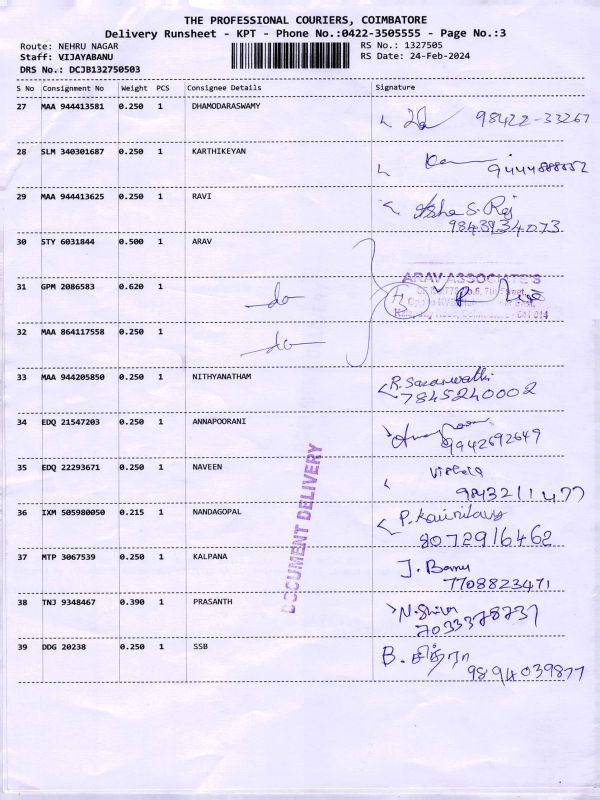 THE PROFESSIONAL COURIERS, COIMBATORE
Delivery Runsheet - KPT - Phone No.:0422-3505555 - Page No.:3
Route: NEHRU NAGAR RS No.: 1327505
Staff: VIJAYABANU RS Date: 24-Feb-2024
DRS No.: DCJB132750503
S No Consignment No Weight PCS Consignee Details Signature
27 MAA 944413581 0.250 1 DHAMODARASWAMY 98422-33267
28 SLM 340301687 0.250 1 KARTHIKEYAN
29 MAA 944413625 0.250 1 RAVI Asha S. Raj
9843934073
30 STY 6031844 0.500 1 ARAV
ARAV ASSOCIATE'S
31 GPM 2086583 0.620 1 do
32 MAA 864117558 0.250 1 do
33 MAA 944205850 0.250 1 NITHYANATHAM R. Saraswathi
7845240002
34 EDQ 21547203 0.250 1 ANNAPOORANI
9942692649
35 EDQ 22293671 0.250 1 NAVEEN
9843211477
36 IXM 505980050 0.215 1 NANDAGOPAL
8072916462
37 MTP 3067539 0.250 1 KALPANA J. Banu
7708823471
38 TNJ 9348467 0.390 1 PRASANTH N. Shiva
39 DDG 20238 0.250 1 SSB B. சித்ரா
9894039877
DOCUMENT DELIVERY